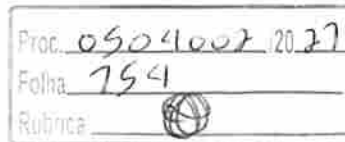 Proc. 0504002 /2021
Folha 154
Rubrica